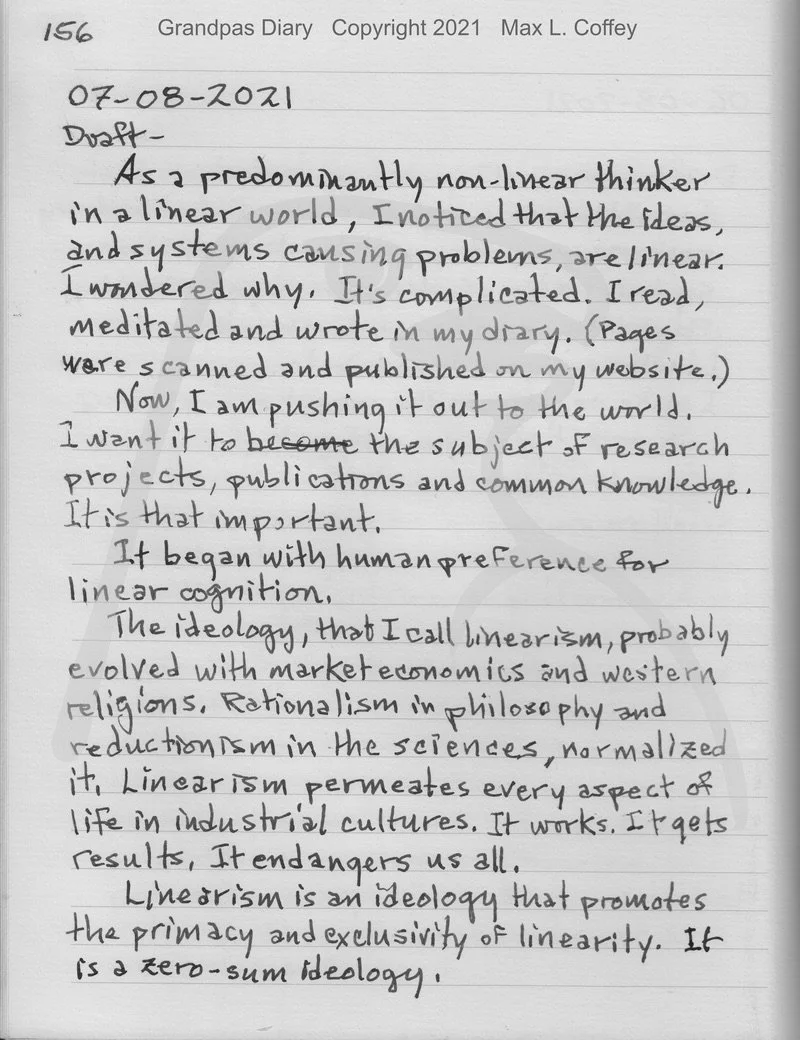 156
Grandpas Diary Copyright 2021 Max L. Coffey
07-08-2021
Draft-
As a predominantly non-linear thinker
in a linear world, I noticed that the ideas,
and systems causing problems, are linear.
I wondered why. It's complicated. I read,
meditated and wrote in my diary. (Pages
ware scanned and published on my website.)
Now, I am pushing it out to the world.
I want it to become the subject of research
projects, publications and common knowledge.
It is that important.
It began with human preference for
linear cognition.
The ideology, that I call linearism, probably
evolved with market economics and western
religions. Rationalism in philosophy and
reductionism in the sciences, normalized
it. Linearism permeates every aspect of
life in industrial cultures. It works. It gets
results. It endangers us all.
Linearism is an ideology that promotes
the primacy and exclusivity of linearity. It
is a zero-sum ideology.